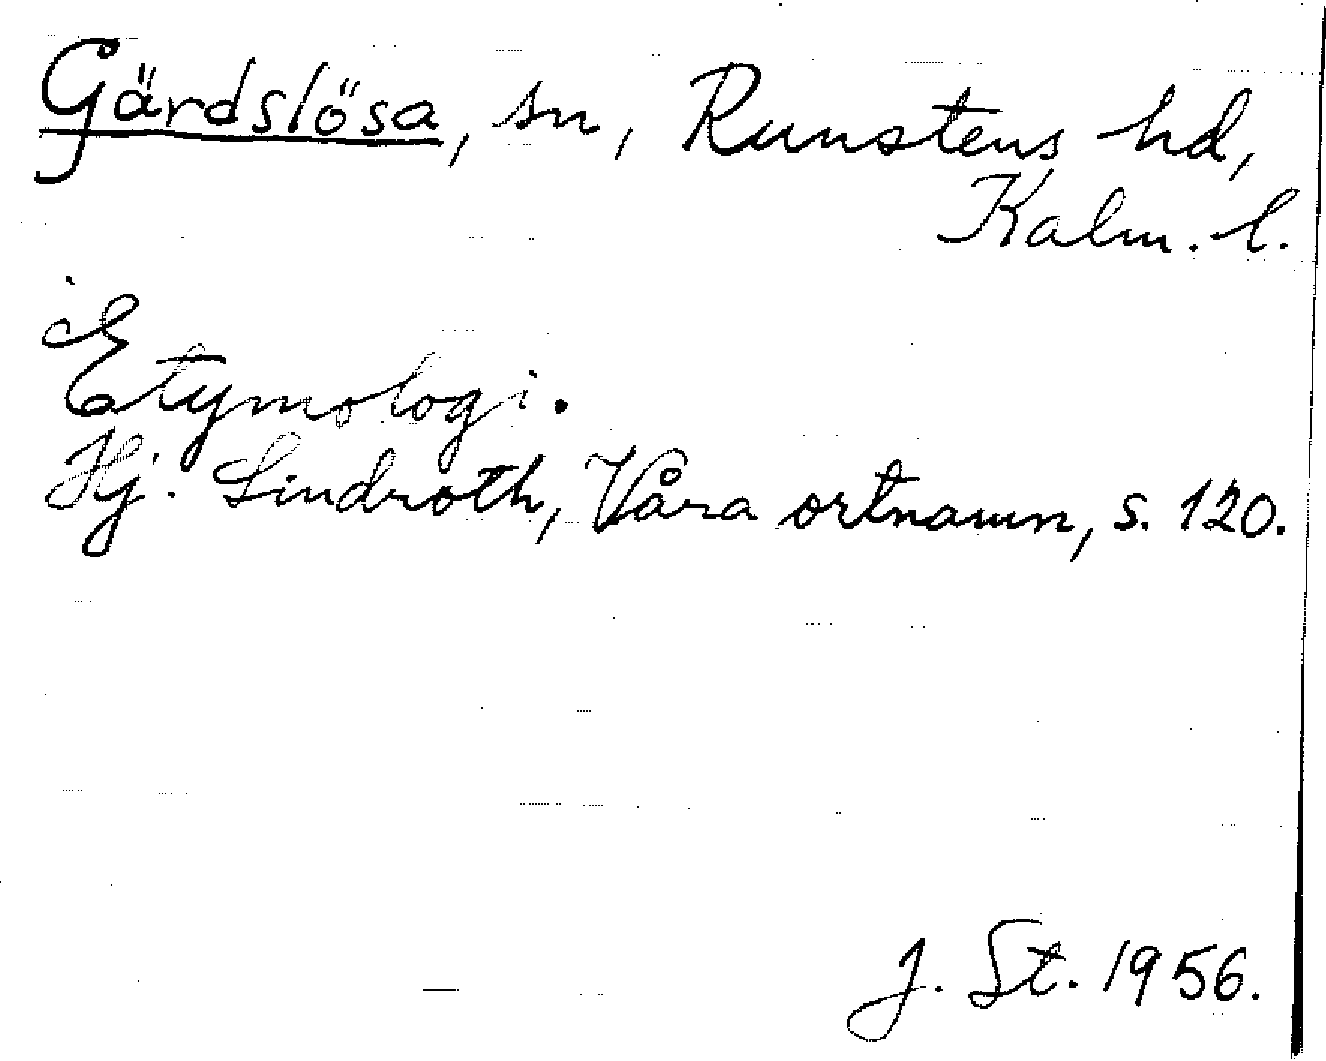 Gärdslösa, sn, Runstens hd,
Kalm. l.
Etymologi.
Hj. Lindroth, Våra ortnamn, s. 120.
J. St. 1956.